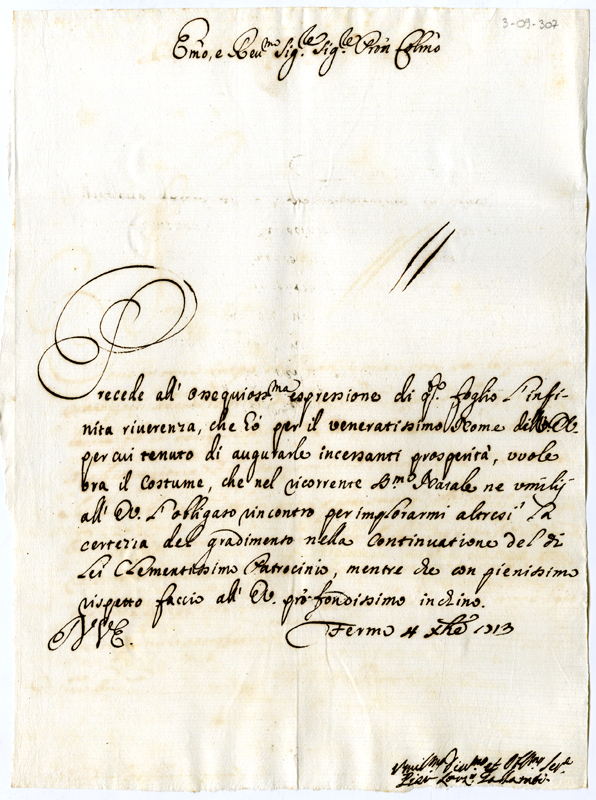 3-09-307
Emo, e Reu.mo Sig.re Sig.re Prõn Colmo
Precede all' ossequioss.ma espressione di q.to foglio l'infi-
nita riuerenza, che hò per il veneratissimo Nome dell' E.V.
per cui tenuto di augurarle incessanti prosperità, vuole
ora il Costume, che nel ricorrente S.mo Natale ne vmilij
all' E.V. l'obligato rincontro per implorarmi altresi' la
certezza del gradimento nella Continuatione del di
Lei Clementissimo Patrocinio, mentre che con pienissimo
rispetto faccio all' E.V. profondissimo inchino.
Fermo 4 Xbre 1713
Vmil.mo Diu.mo et Oss.mo Ser.e